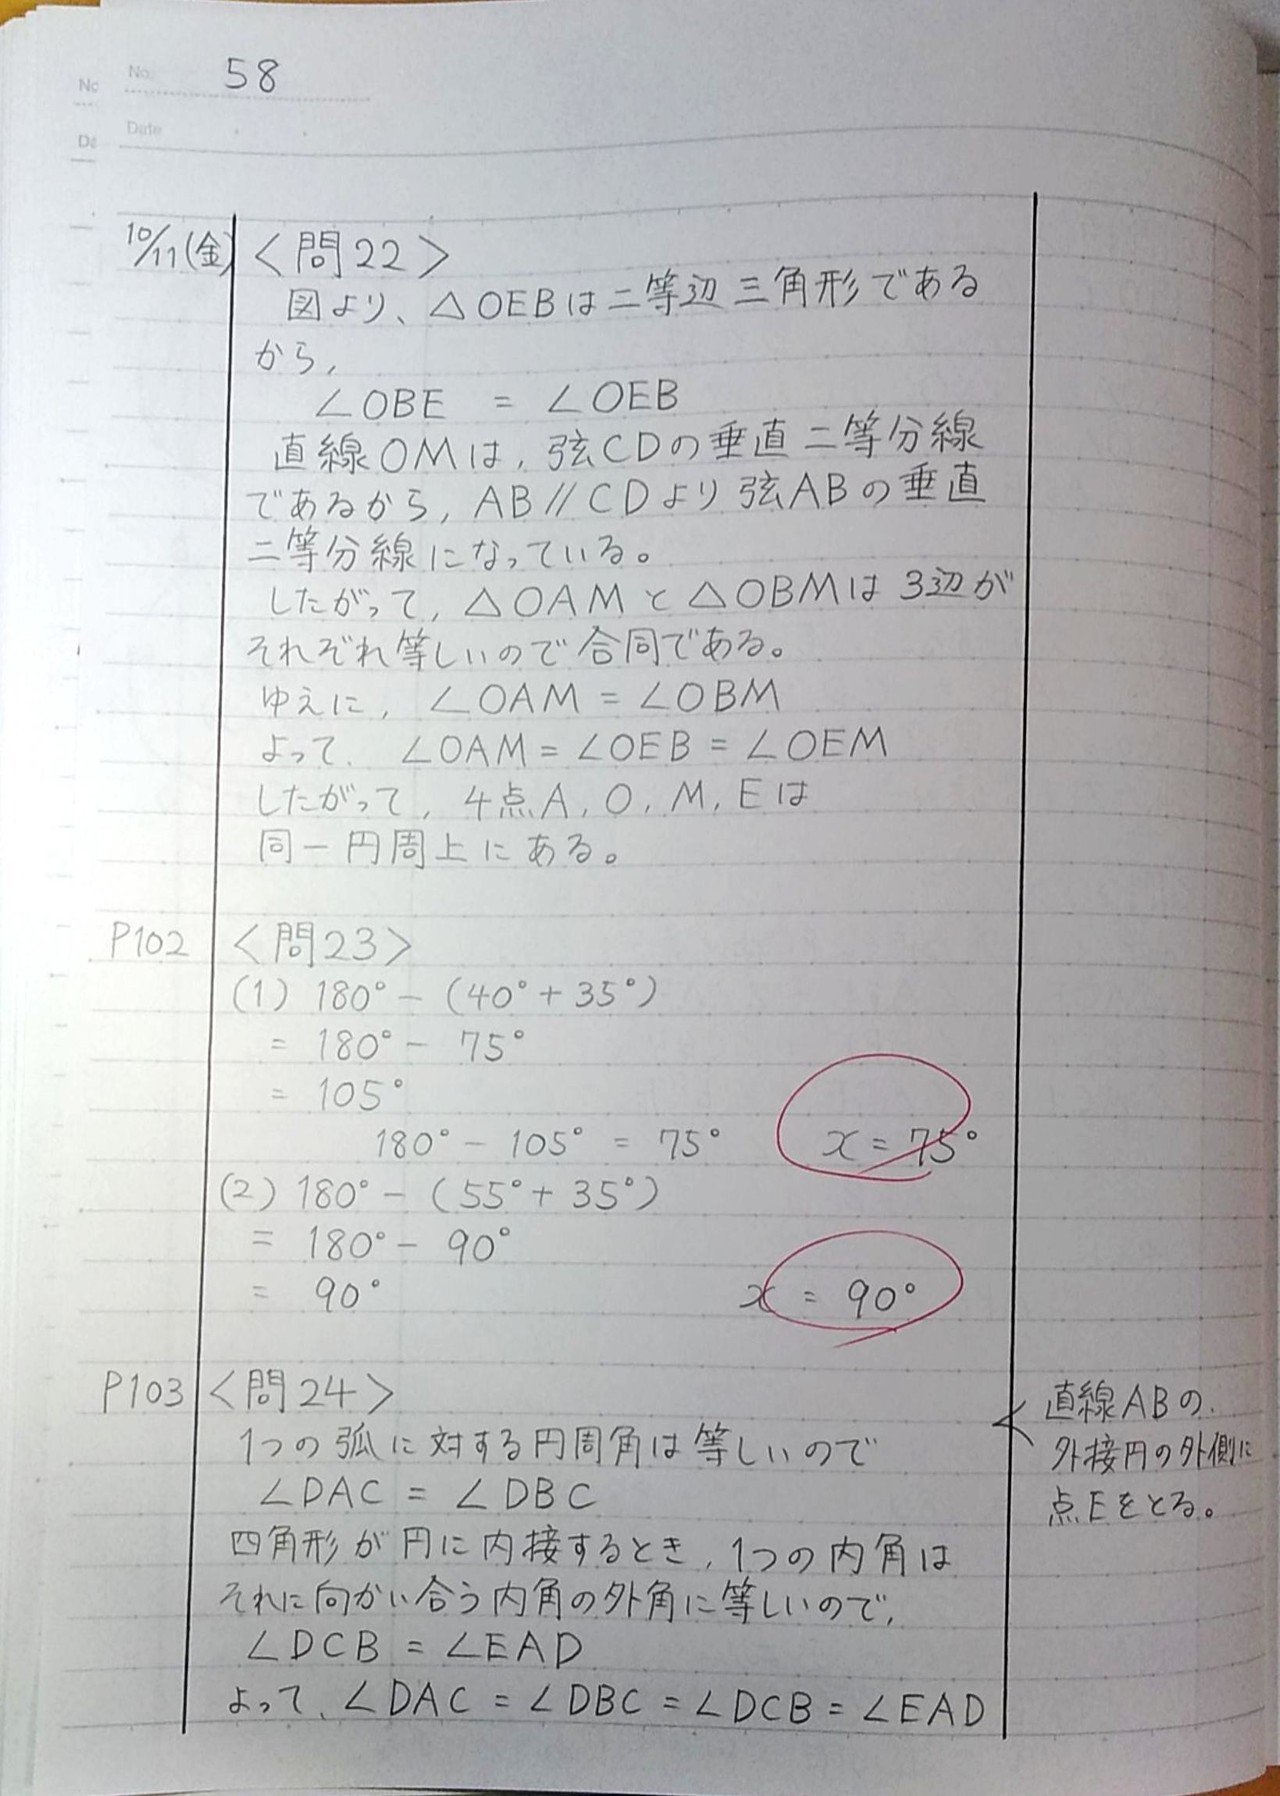 No. 58
No
Date
Da
10/11(金) <問22>
図より、△OEBは二等辺三角形である
から,
∠OBE = ∠OEB
直線OMは, 弦CDの垂直二等分線
であるから, AB//CDより弦ABの垂直
二等分線になっている。
したがって, △OAMと△OBMは3辺が
それぞれ等しいので合同である。
ゆえに, ∠OAM = ∠OBM
よって. ∠OAM = ∠OEB = ∠OEM
したがって, 4点A, O, M, Eは
同一円周上にある。
P102 <問23>
(1) 180° - (40° + 35°)
= 180° - 75°
= 105°
180° - 105° = 75° x = 75°
(2) 180° - (55° + 35°)
= 180° - 90°
= 90° x = 90°
P103 <問24>
1つの弧に対する円周角は等しいので
∠DAC = ∠DBC
四角形が円に内接するとき, 1つの内角は
それに向かい合う内角の外角に等しいので,
∠DCB = ∠EAD
よって、∠DAC = ∠DBC = ∠DCB = ∠EAD
直線ABの.
外接円の外側に
点Eをとる。